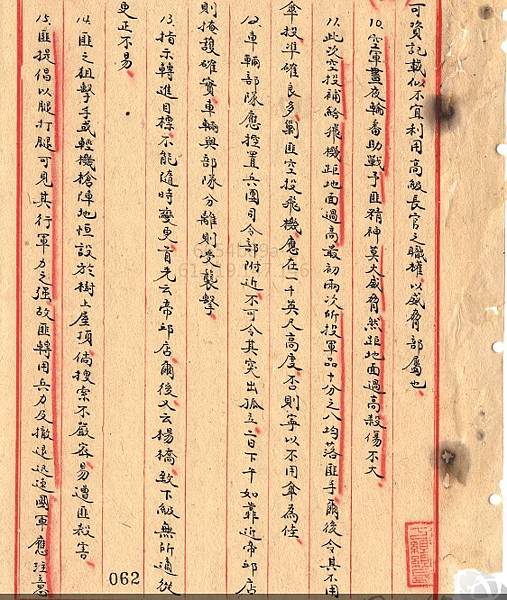 可資記載似不宜利用高級長官之職權以威脅部屬也
10.空軍晝夜輪番助戰予匪精神莫大威脅然距地面過高殺傷不大
11.此次空投補給飛機距地面過高最初兩次所投軍品十分之八均落匪手爾後令其不用
傘投準確良多剿匪空投飛機應在一千英尺高度否則寧以不用傘為佳
12.車輛部隊應控置兵團司令部附近不可令其突出孤立二日下午如靠近帝邱店
則掩護確實車輛與部隊分離則受襲擊
13.指示轉進目標不能隨時變更首先云帝邱店爾後又云楊橋致下級無所適從
更正不易
14.匪之狙擊手或輕機槍陣地恒設於樹上屋頂倘搜索不嚴容易遭匪殺害
15.匪提倡以腿打腿可見其行軍力之強故匪轉用兵力及撤退迅速國軍應注意
062